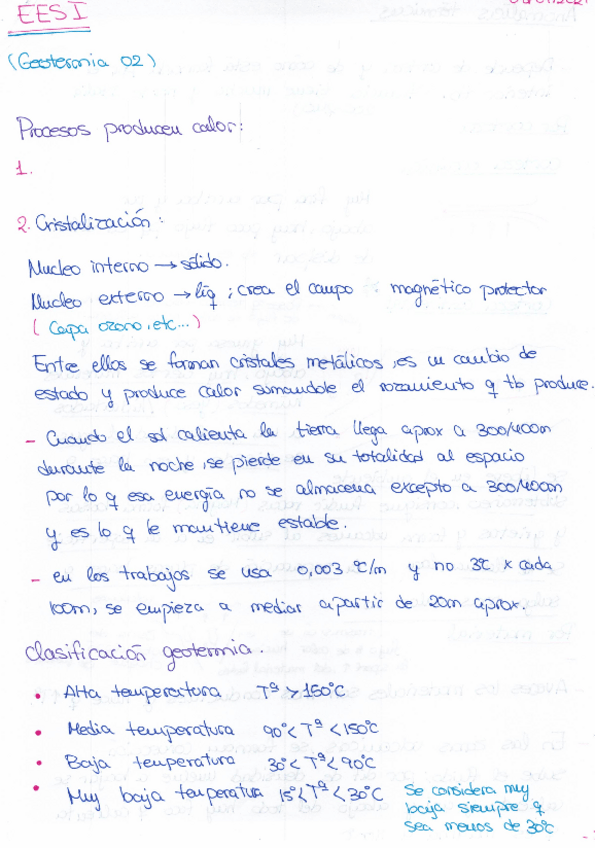 EESI
(Geotermia 02)
Procesos producen calor:
1.
2. Cristalización:
Nucleo interno → sólido.
Nucleo externo → líq ; crea el campo magnético protector
( Capa ozono, etc...)
Entre ellos se forman cristales metálicos, es un cambio de
estado y produce calor sumandole el rozamiento q tb produce.
- Cuando el sol calienta la tierra llega aprox a 300/400m
durante la noche, se pierde en su totalidad al espacio
por lo q esa energía no se almacena excepto a 300/400m
y es lo q le mantiene estable.
- en los trabajos se usa 0,003 ºC/m y no 3ºC x cada
100m, se empieza a mediar apartir de 20m aprox.
Clasificación geotermia.
• Alta temperatura Tª > 150ºC
• Media temperatura 90º < Tª < 150ºC
• Baja temperatura 30º < Tª < 90ºC
• Muy baja temperatura 15º < Tª < 30ºC
Se considera muy
baja siempre q
sea menos de 30ºC